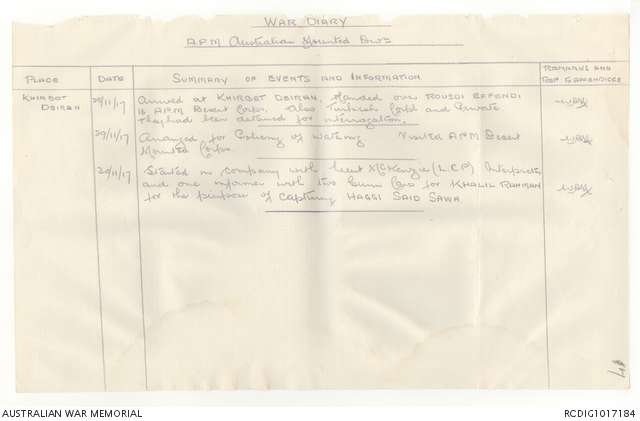 WAR DIARY
A.P.M. Australian Mounted Divn
PLACE DATE SUMMARY OF EVENTS AND INFORMATION REMARKS AND REF. TO APPENDICES
KHIRBET DEIRAN 28/11/17 Arrived at KHIRBET DEIRAN, Handed over ROUSDI EFFENDI
to A.P.M. Desert Corps. Also Turkish Corpl and Private
They had been detained for interrogation.
29/11/17 Arranged for of watering Visited A.P.M. Desert
Mounted Corps.
30/11/17 Started in company with Lieut McKenzie (L.C.P) Interpreter
and one informer with two for KHALIL RAHMAN
for the purpose of capturing HAGGI SAID SAWA
AUSTRALIAN WAR MEMORIAL
RCDIG1017184